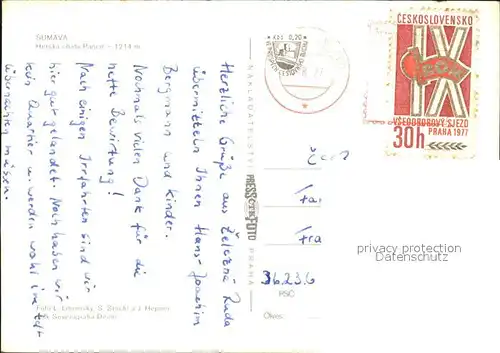 ŠUMAVA
Horská chata Pancíř – 1214 m
Herzliche Grüße aus Železná Ruda
übermitteln Ihnen Hans-Joachim
Bergmann und Kinder.
Nochmals vielen Dank für die
nette Bewirtung!
Nach einigen Irrfahrten sind wir
hier gut gelandet. Noch haben wir
kein Quartier u. werden wohl im Zelt
übernachten müssen.
Foto
KčS 0,20
NAKLADATELSTVÍ PRESSFOTO PRAHA
ČESKOSLOVENSKO
IX
VŠEODBOROVÝ SJEZD
PRAHA 1977
30h
36236
PSČ
Okres:
privacy protection
Datenschutz